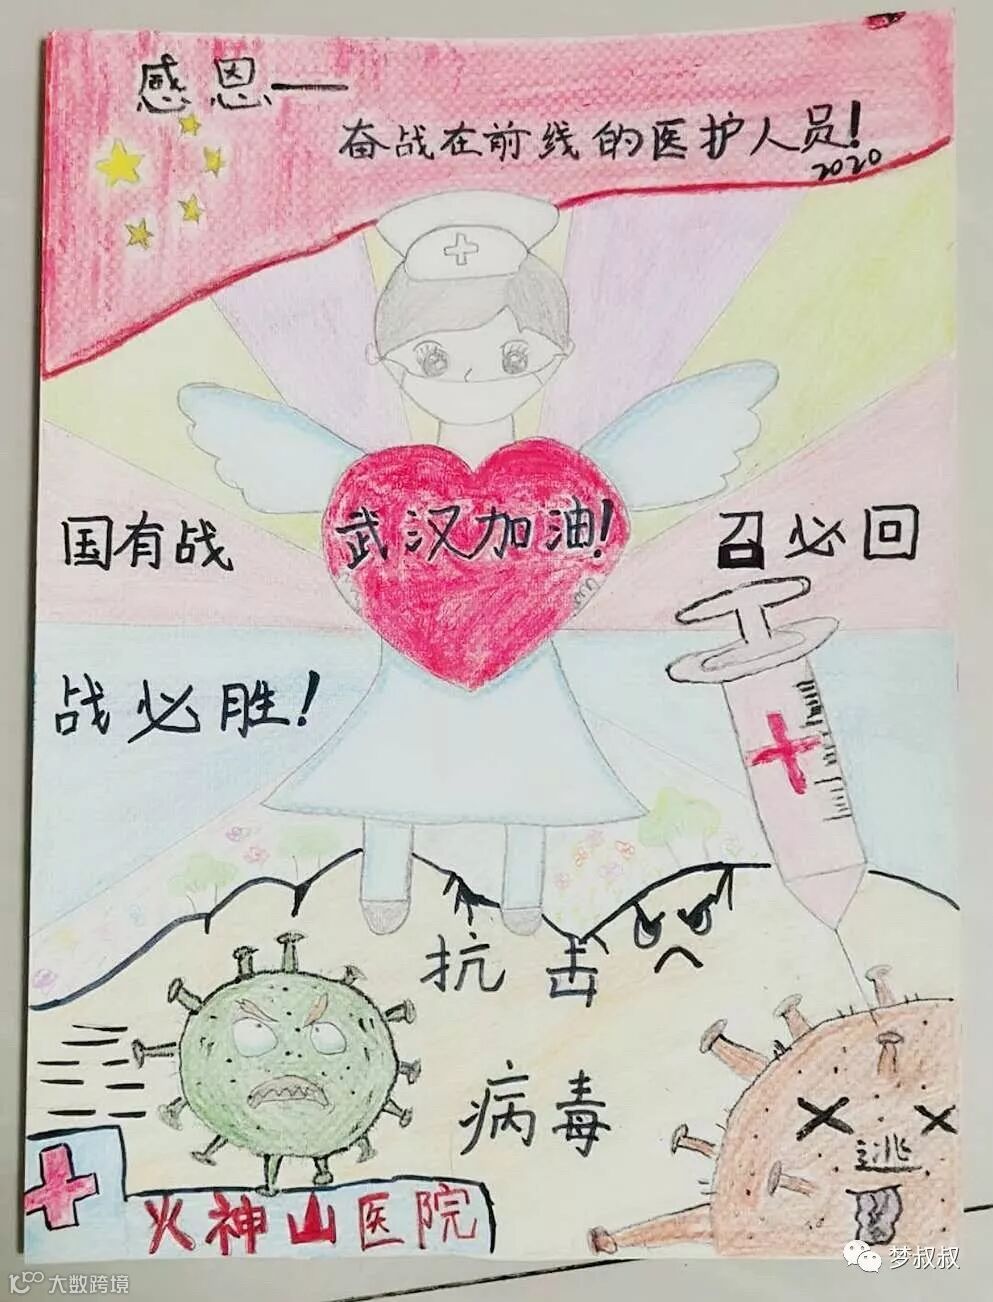 感恩一
奋战在前线的医护人员!
2020
国有战
武汉加油!
召必回
战必胜!
抗击
病毒
逃
火神山医院
大数跨境
梦叔叔